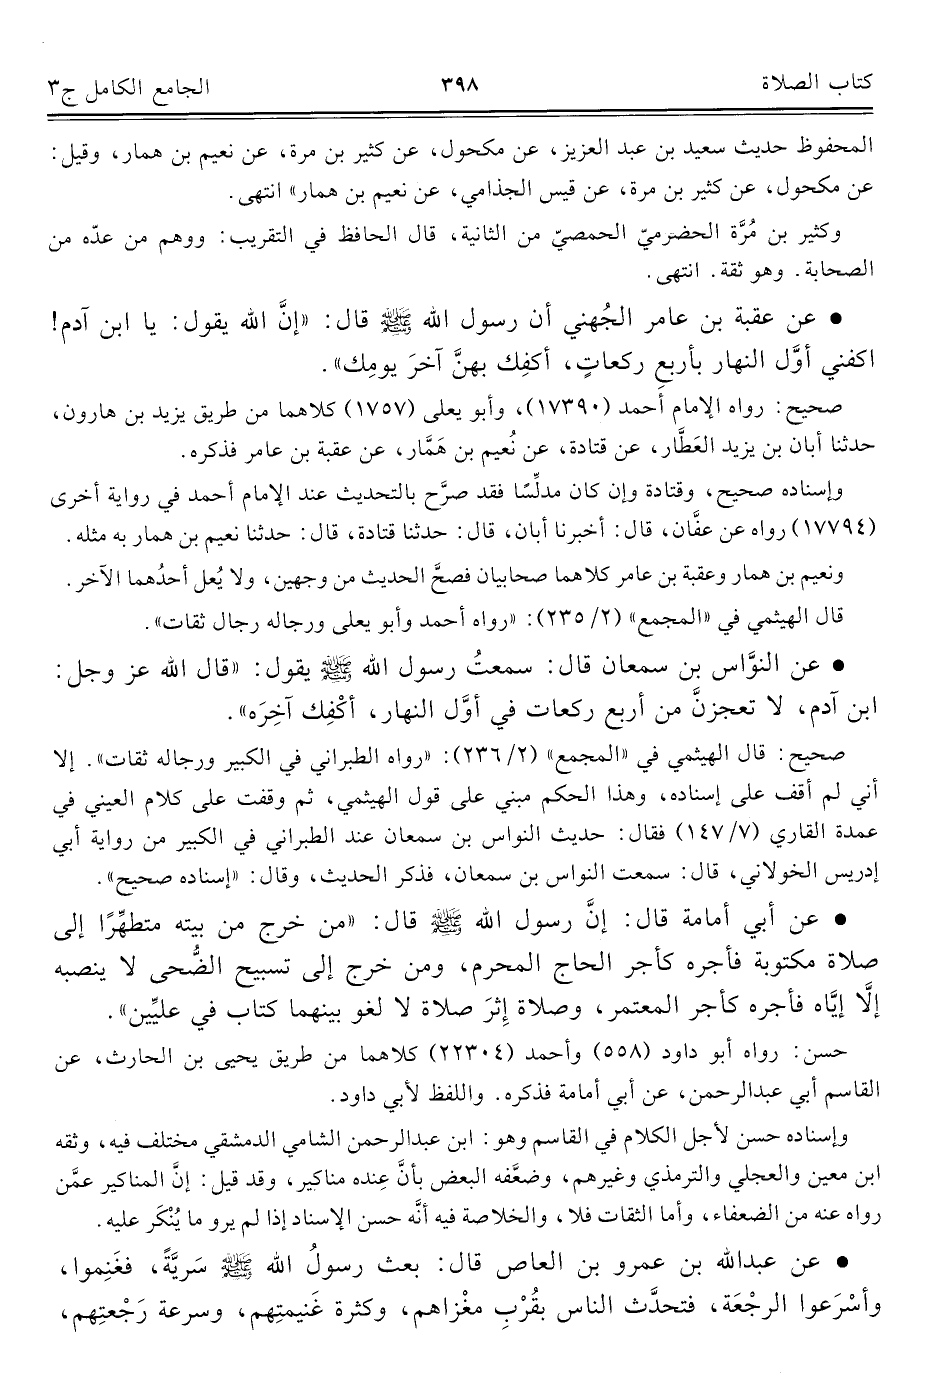 كتاب الصلاة ٣٩٨ الجامع الكامل ج٣
المحفوظ حديث سعيد بن عبد العزيز، عن مكحول، عن كثير بن مرة، عن نعيم بن همار، وقيل:
عن مكحول، عن كثير بن مرة، عن قيس الجذامي، عن نعيم بن همار» انتهى.
وكثير بن مُرَّة الحضرميّ الحمصيّ من الثانية، قال الحافظ في التقريب: ووهم من عدّه من
الصحابة. وهو ثقة. انتهى.
• عن عقبة بن عامر الجُهني أن رسول الله ﷺ قال: «إنَّ الله يقول: يا ابن آدم!
اكفني أوَّل النهار بأربعِ ركعاتٍ، أكفِك بهنَّ آخرَ يومِك».
صحيح: رواه الإمام أحمد (١٧٣٩٠)، وأبو يعلى (١٧٥٧) كلاهما من طريق يزيد بن هارون،
حدثنا أبان بن يزيد العَطَّار، عن قتادة، عن نُعيم بن هَمَّار، عن عقبة بن عامر فذكره.
وإسناده صحيح، وقتادة وإن كان مدلِّسًا فقد صرَّح بالتحديث عند الإمام أحمد في رواية أخرى
(١٧٧٩٤) رواه عن عفَّان، قال: أخبرنا أبان، قال: حدثنا قتادة، قال: حدثنا نعيم بن همار به مثله.
ونعيم بن همار وعقبة بن عامر كلاهما صحابيان فصحَّ الحديث من وجهين، ولا يُعل أحدُهما الآخر.
قال الهيثمي في «المجمع» (٢/ ٢٣٥): «رواه أحمد وأبو يعلى ورجاله رجال ثقات».
• عن النوَّاس بن سمعان قال: سمعتُ رسول الله ﷺ يقول: «قال الله عز وجل:
ابن آدم، لا تعجزنَّ من أربع ركعات في أوَّل النهار، أكْفِك آخِرَه».
صحيح: قال الهيثمي في «المجمع» (٢/ ٢٣٦): «رواه الطبراني في الكبير ورجاله ثقات». إلا
أني لم أقف على إسناده، وهذا الحكم مبني على قول الهيثمي، ثم وقفت على كلام العيني في
عمدة القاري (٧/ ١٤٧) فقال: حديث النواس بن سمعان عند الطبراني في الكبير من رواية أبي
إدريس الخولاني، قال: سمعت النواس بن سمعان، فذكر الحديث، وقال: «إسناده صحيح».
• عن أبي أمامة قال: إنَّ رسول الله ﷺ قال: «من خرج من بيته متطهِّرًا إلى
صلاة مكتوبة فأجره كأجر الحاج المحرم، ومن خرج إلى تسبيح الضُّحى لا ينصبه
إلَّا إيَّاه فأجره كأجر المعتمر، وصلاة إثرَ صلاة لا لغو بينهما كتاب في عليِّين».
حسن: رواه أبو داود (٥٥٨) وأحمد (٢٢٣٠٤) كلاهما من طريق يحيى بن الحارث، عن
القاسم أبي عبدالرحمن، عن أبي أمامة فذكره. واللفظ لأبي داود.
وإسناده حسن لأجل الكلام في القاسم وهو: ابن عبدالرحمن الشامي الدمشقي مختلف فيه، وثقه
ابن معين والعجلي والترمذي وغيرهم، وضعَّفه البعض بأنَّ عِنده مناكير، وقد قيل: إنَّ المناكير عمَّن
رواه عنه من الضعفاء، وأما الثقات فلا، والخلاصة فيه أنَّه حسن الإسناد إذا لم يرو ما يُنْكَر عليه.
• عن عبدالله بن عمرو بن العاص قال: بعث رسولُ الله ﷺ سَريَّةً، فغَنِموا،
وأسْرَعوا الرجْعَة، فتحدَّث الناس بقُرْبِ مغْزاهم، وكثرة غَنيمتِهم، وسرعة رَجْعتِهم،